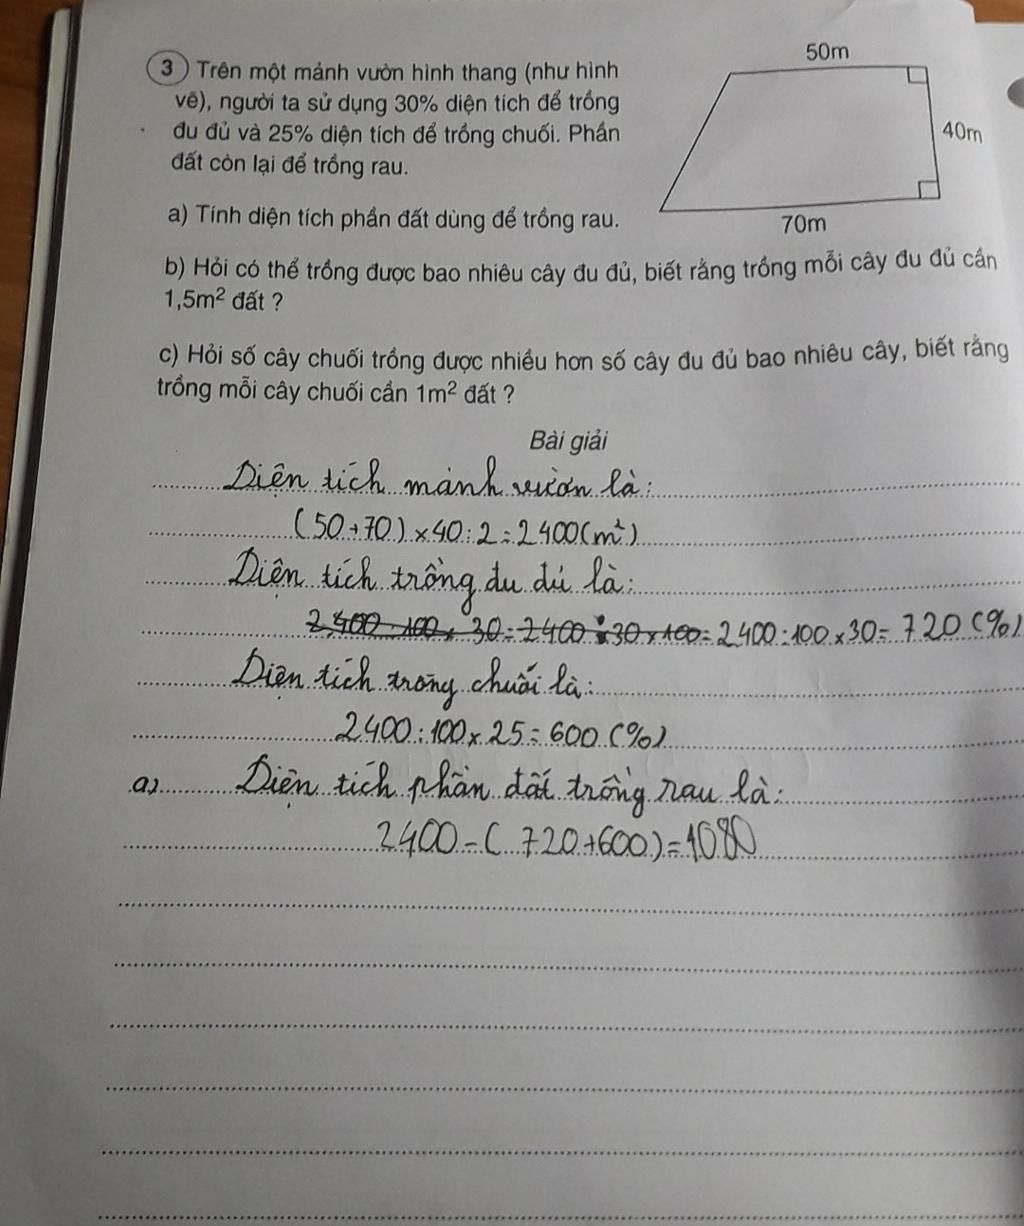 3 Trên một mảnh vườn hình thang (như hình
vẽ), người ta sử dụng 30% diện tích để trồng
đu đủ và 25% diện tích để trồng chuối. Phần
đất còn lại để trồng rau.
50m
40m
70m
a) Tính diện tích phần đất dùng để trồng rau.
b) Hỏi có thể trồng được bao nhiêu cây đu đủ, biết rằng trồng mỗi cây đu đủ cần
1,5m² đất ?
c) Hỏi số cây chuối trồng được nhiều hơn số cây đu đủ bao nhiêu cây, biết rằng
trồng mỗi cây chuối cần 1m² đất ?
Bài giải
Diện tích mảnh vườn là:
(50+70)×40:2=2400(m²)
Diện tích trồng đu đủ là:
2400:100×30=2400:30×100=2400:100×30=720(%)
Diện tích trồng chuối là:
2400:100×25=600(%)
a) Diện tích phần đất trồng rau là:
2400-(720+600)=1080